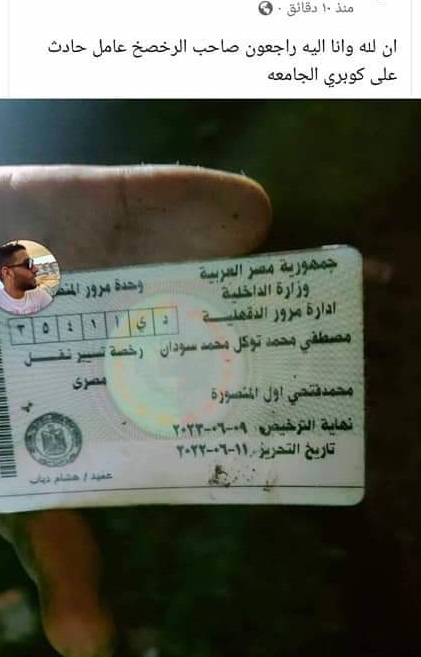 منذ ١٠ دقائق ·
ان لله وانا اليه راجعون صاحب الرخصخ عامل حادث
على كوبري الجامعه
جمهورية مصر العربية
وزارة الداخلية
وحدة مرور
ادارة مرور الدقهلية
د ى ١ ١ ٤ ٥ ٣
مصطفي محمد توكل محمد سودان
رخصة تسيير نقل
مصرى
محمدفتحي اول المنصورة
نهاية الترخيص ٠٩-٠٦-٢٠٢٣
تاريخ التحرير ١١-٠٦-٢٠٢٢
عميد / هشام دياب